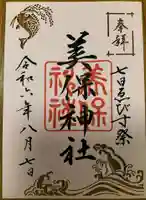 奉拝
七日えびす祭
美保神社
令和六年八月七日